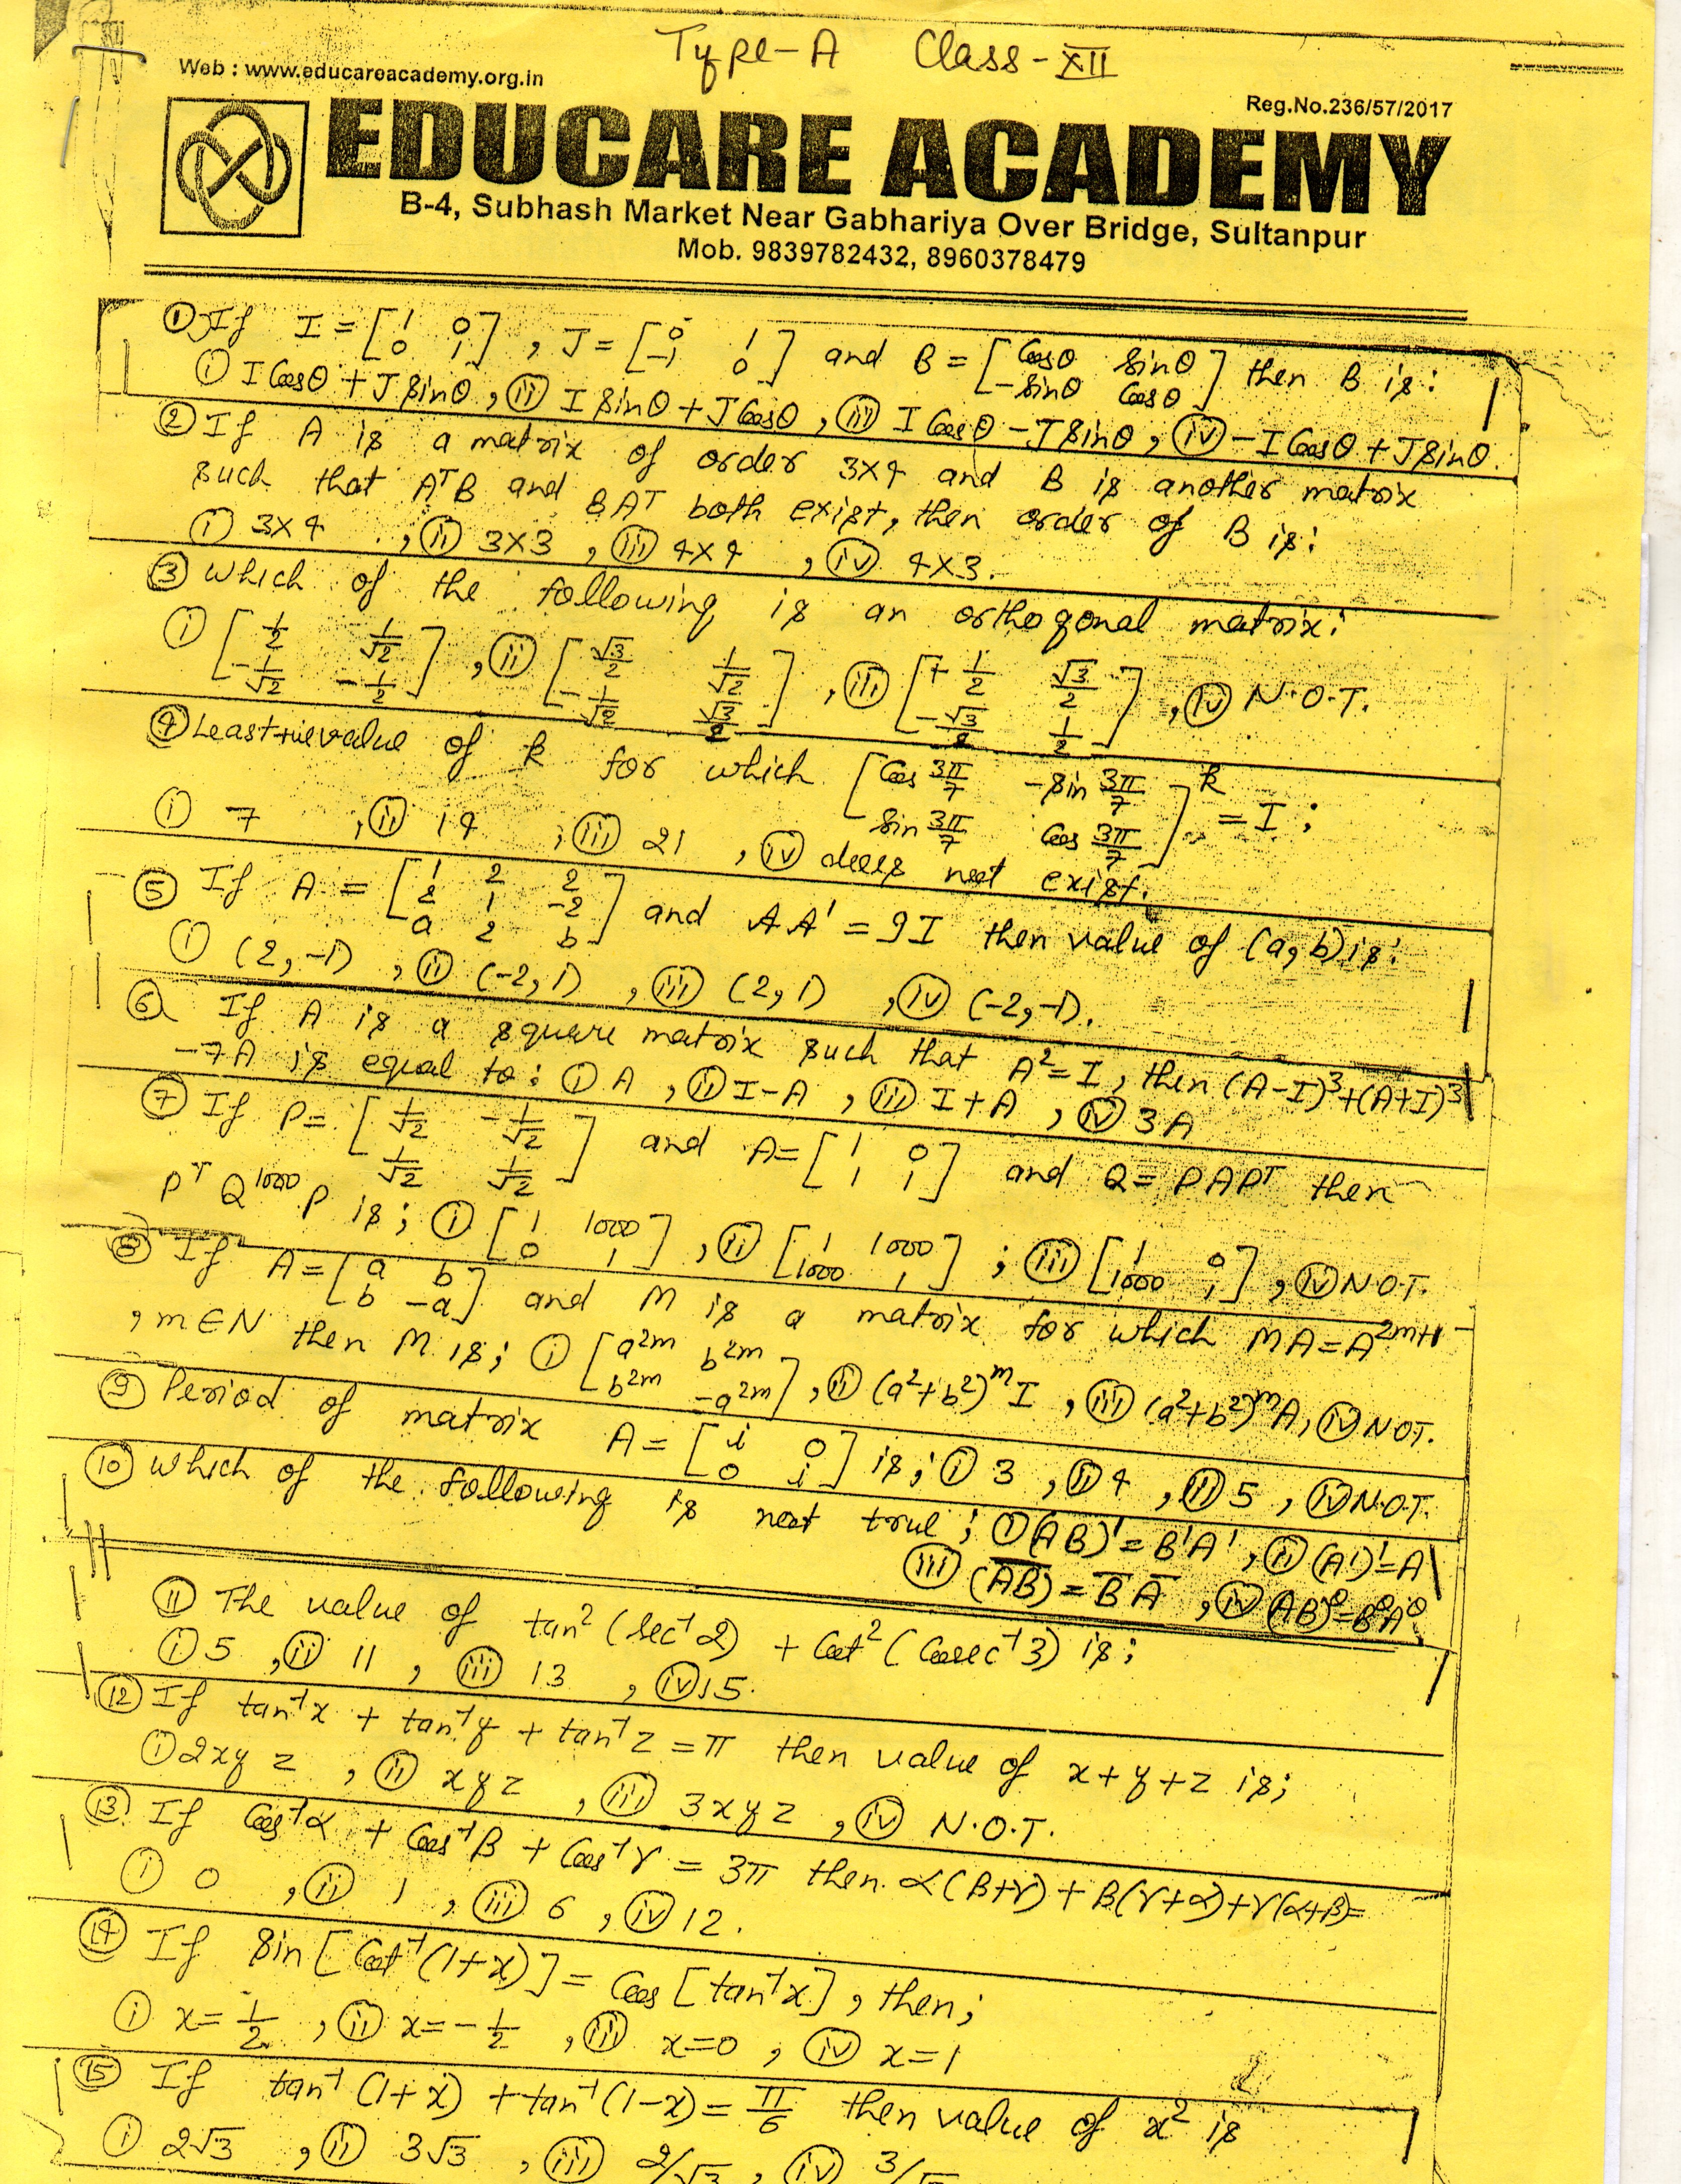 Type-A Class-XII
Web : www.educareacademy.org.in
Reg.No.236/57/2017
EDUCARE ACADEMY
B-4, Subhash Market Near Gabhariya Over Bridge, Sultanpur
Mob. 9839782432, 8960378479
① If I = [1 0; 0 1], J = [0 1; -1 0] and B = [Cosθ sinθ; -sinθ Cosθ] then B is:
ⓘ I Cosθ + J sinθ, ⓘⓘ I sinθ + J Cosθ, ⓘⓘⓘ I Cosθ - J sinθ, ⓘⓥ - I Cosθ + J sinθ.
② If A is a matrix of order 3×4 and B is another matrix
such that AᵀB and BAᵀ both exist, then order of B is:
ⓘ 3×4, ⓘⓘ 3×3, ⓘⓘⓘ 4×4, ⓘⓥ 4×3.
③ Which of the following is an orthogonal matrix:
ⓘ [1/2 1/√2; -1/√2 -1/2], ⓘⓘ [√3/2 1/√2; -1/√2 √3/2], ⓘⓘⓘ [+1/2 √3/2; -√3/2 1/2], ⓘⓥ N.O.T.
④ Least +ve value of k for which [Cos 3π/7 -sin 3π/7; sin 3π/7 Cos 3π/7]ᵏ = I;
ⓘ 7, ⓘⓘ 14, ⓘⓘⓘ 21, ⓘⓥ does not exist.
⑤ If A = [1 2 2; 2 1 -2; a 2 b] and AA' = 9I then value of (a, b) is:
ⓘ (2, -1), ⓘⓘ (-2, 1), ⓘⓘⓘ (2, 1), ⓘⓥ (-2, -1).
⑥ If A is a square matrix such that A² = I, then (A-I)³+(A+I)³
-7A is equal to: ⓘ A, ⓘⓘ I-A, ⓘⓘⓘ I+A, ⓘⓥ 3A
⑦ If P = [1/√2 -1/√2; 1/√2 1/√2] and A = [1 0; 1 1] and Q = PAPᵀ then
Pᵀ Q¹⁰⁰⁰ P is; ⓘ [1 1000; 0 1], ⓘⓘ [1 1000; 1000 1]; ⓘⓘⓘ [1 0; 1000 1], ⓘⓥ N.O.T.
⑧ If A = [a b; b -a] and M is a matrix for which MA = A²ᵐ⁺¹
, m∈N then M is; ⓘ [a²ᵐ b²ᵐ; b²ᵐ -a²ᵐ], ⓘⓘ (a²+b²)ᵐ I, ⓘⓘⓘ (a²+b²)ᵐ A, ⓘⓥ N.O.T.
⑨ Period of matrix A = [i 0; 0 i] is; ⓘ 3, ⓘⓘ 4, ⓘⓘⓘ 5, ⓘⓥ N.O.T.
⑩ Which of the following is not true; ⓘ (AB)' = B'A', ⓘⓘ (A')' = A
ⓘⓘⓘ (A̅B̅) = B̅ A̅, ⓘⓥ (AB)^θ = B^θA^θ
⑪ The value of tan² (sec⁻¹ 2) + Cot² (Cosec⁻¹ 3) is;
ⓘ 5, ⓘⓘ 11, ⓘⓘⓘ 13, ⓘⓥ 15.
⑫ If tan⁻¹x + tan⁻¹y + tan⁻¹z = π then value of x+y+z is;
ⓘ 2xyz, ⓘⓘ xyz, ⓘⓘⓘ 3xyz, ⓘⓥ N.O.T.
⑬ If Cos⁻¹α + Cos⁻¹β + Cos⁻¹γ = 3π then α(β+γ) + β(γ+α)+γ(α+β)=
ⓘ 0, ⓘⓘ 1, ⓘⓘⓘ 6, ⓘⓥ 12.
⑭ If sin[Cot⁻¹(1+x)] = Cos[tan⁻¹x], then;
ⓘ x = 1/2, ⓘⓘ x = -1/2, ⓘⓘⓘ x=0, ⓘⓥ x=1
⑮ If tan⁻¹(1+x) + tan⁻¹(1-x) = π/6 then value of x² is
ⓘ 2√3, ⓘⓘ 3√3, ⓘⓘⓘ 2/√3, ⓘⓥ